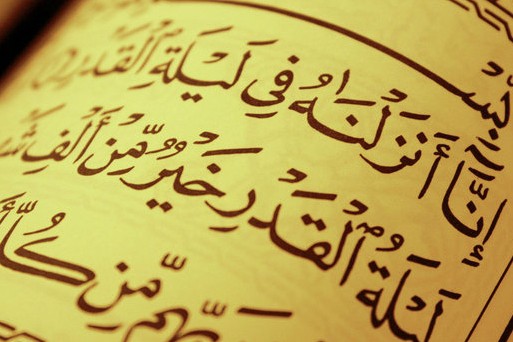 بِسْ
إِنَّآ أَنزَلْنَٰهُ فِى لَيْلَةِ ٱلْقَدْرِ
لَيْلَةُ ٱلْقَدْرِ خَيْرٌ مِّنْ أَلْفِ شَ
رَبِّهِم مِّن كُلِّ أَ